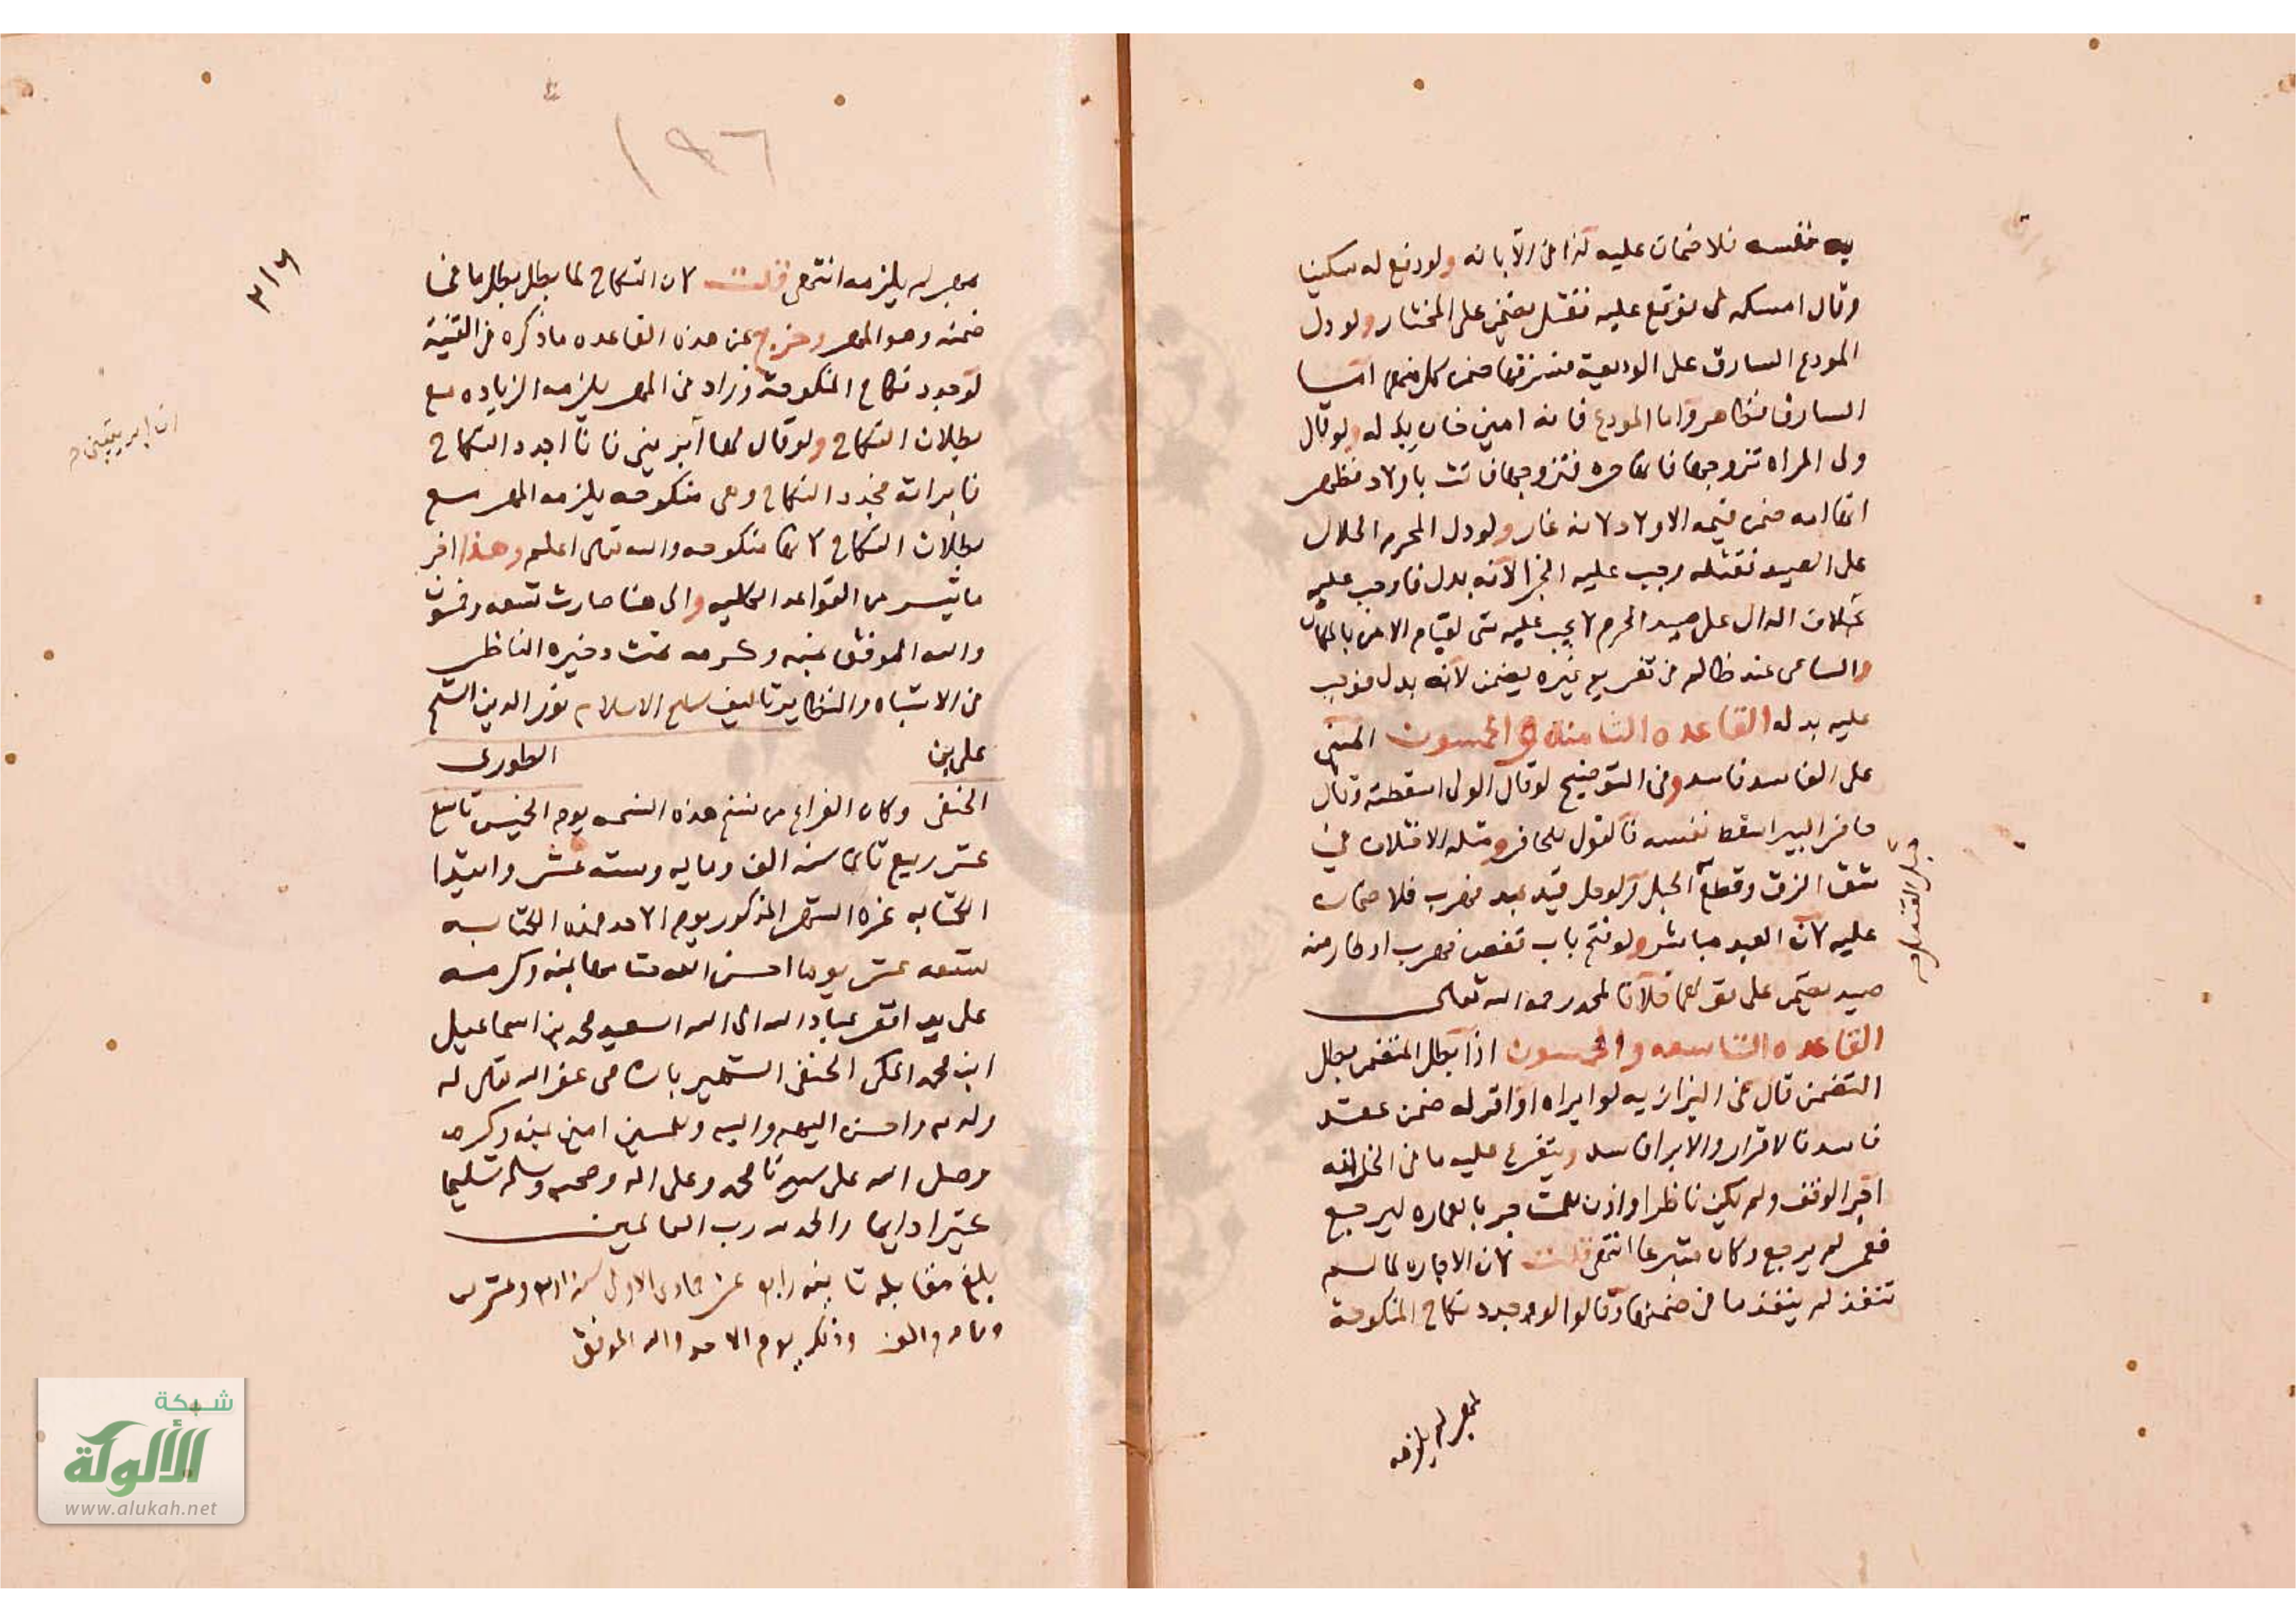 به نفسه فلا ضمان عليه كذا في الابانه ولو دفع له سكينا
وقال امسكه لي فوقع عليه فقتل يضمن على المختار ولو دل
المودع السارق على الوديعة فسرقها ضمن كل منهما اما
السارق فظاهر واما المودع فانه امين خان بدله ولو قال
ولى المراه تزوجها فانها حره فتزوجها فاتت باولاد فظهر
انها امه ضمن قيمه الاولاد لانه غار ولو دل المحرم الحلال
على الصيد فقتله وجب عليه الجزا لانه بدل فاوجب عليه
بخلاف الدال على صيد الحرم لا يجب عليه شى لقيام الامن بالمكان
والساعى عند ظالم في تغريم غيره يضمن لانه بدل فوجب
عليه بدله القاعده الثامنه والخمسون المبنى
على الفاسد فاسد وفي التوضيح لو قال الولى اسقطته وقال
حافر البير اسقط نفسه فالقول للحافر ومثله الاختلاف في
شق الزق وقطع الحبل ولو حل قيد عبد فهرب فلا ضمان
عليه لان العبد مباشر ولو فتح باب قفص فهرب او طار منه
صيد يضمن على قولهما خلافا لمحمد رحمه الله تعالى
القاعده التاسعه والخمسون اذا بطل المتضمن بطل
التضمن قال في البزازيه لو ابراه او اقر له ضمن عقد
فاسد فالاقرار والابرا فاسد ويتفرع عليه ما في الخزانه
اجر الوقف ولم يكن ناظرا واذن للمستاجر بالعماره ليرجع
فعمر لم يرجع وكان متبرعا انتهى قلت لان الاجاره لما لم
تنفذ لم ينفذ ما في ضمنها وقالوا لو جدد نكاح المنكوحة
بمهر لم يلزمه
حبل القنديل م
١٩٦
٣١٦
بمهر لم يلزمه انتهى قلت لان النكاح لما بطل بطل ما في
ضمنه وهو المهر وخرج عن هذه القاعده ما ذكره في القنية
لو جدد نكاح المنكوحة وزاد في المهر يلزمه الزياده مع
بطلان النكاح ولو قال لها ابريني فانا اجدد النكاح
فابراته فجدد النكاح وهى منكوحه يلزمه المهر مع
بطلان النكاح لانها منكوحه والله تعالى اعلم وهذا اخر
ما تيسر من القواعد الكليه والى هنا صارت تسعه وخمسون
والله الموفق بمنه وكرمه تمت ذخيره الناظر
في الاشباه والنظاير تاليف شيخ الاسلام نور الدين الشيخ
على بن الطورى
الحنفى وكان الفراغ من نسخ هذه النسخه يوم الخميس تاسع
عشر ربيع ثاني سنه الف ومايه وسته عشر وابتدا
الكتابه غره الشهر المذكور يوم الاحد فهذه الكتابه
تسعه عشر يوما احسن الله ختامها بمنه وكرمه
على يد افقر عباد الله الى الله السعيد محمد بن اسماعيل
ابن محمد المكى الحنفى الشهير غفر الله تعالى له
ولوالديه واحسن اليهم واليه وللمسلمين امين بمنه وكرمه
وصلى الله على سيدنا محمد وعلى اله وصحبه وسلم تسليما
كثيرا دايما والحمد لله رب العالمين
بلغ مقابله رابع عشر جمادى الاولى سنه وعشرين
ومايه والف وذلك يوم الاحد والله الموفق
شبكة
الألوكة
www.alukah.net